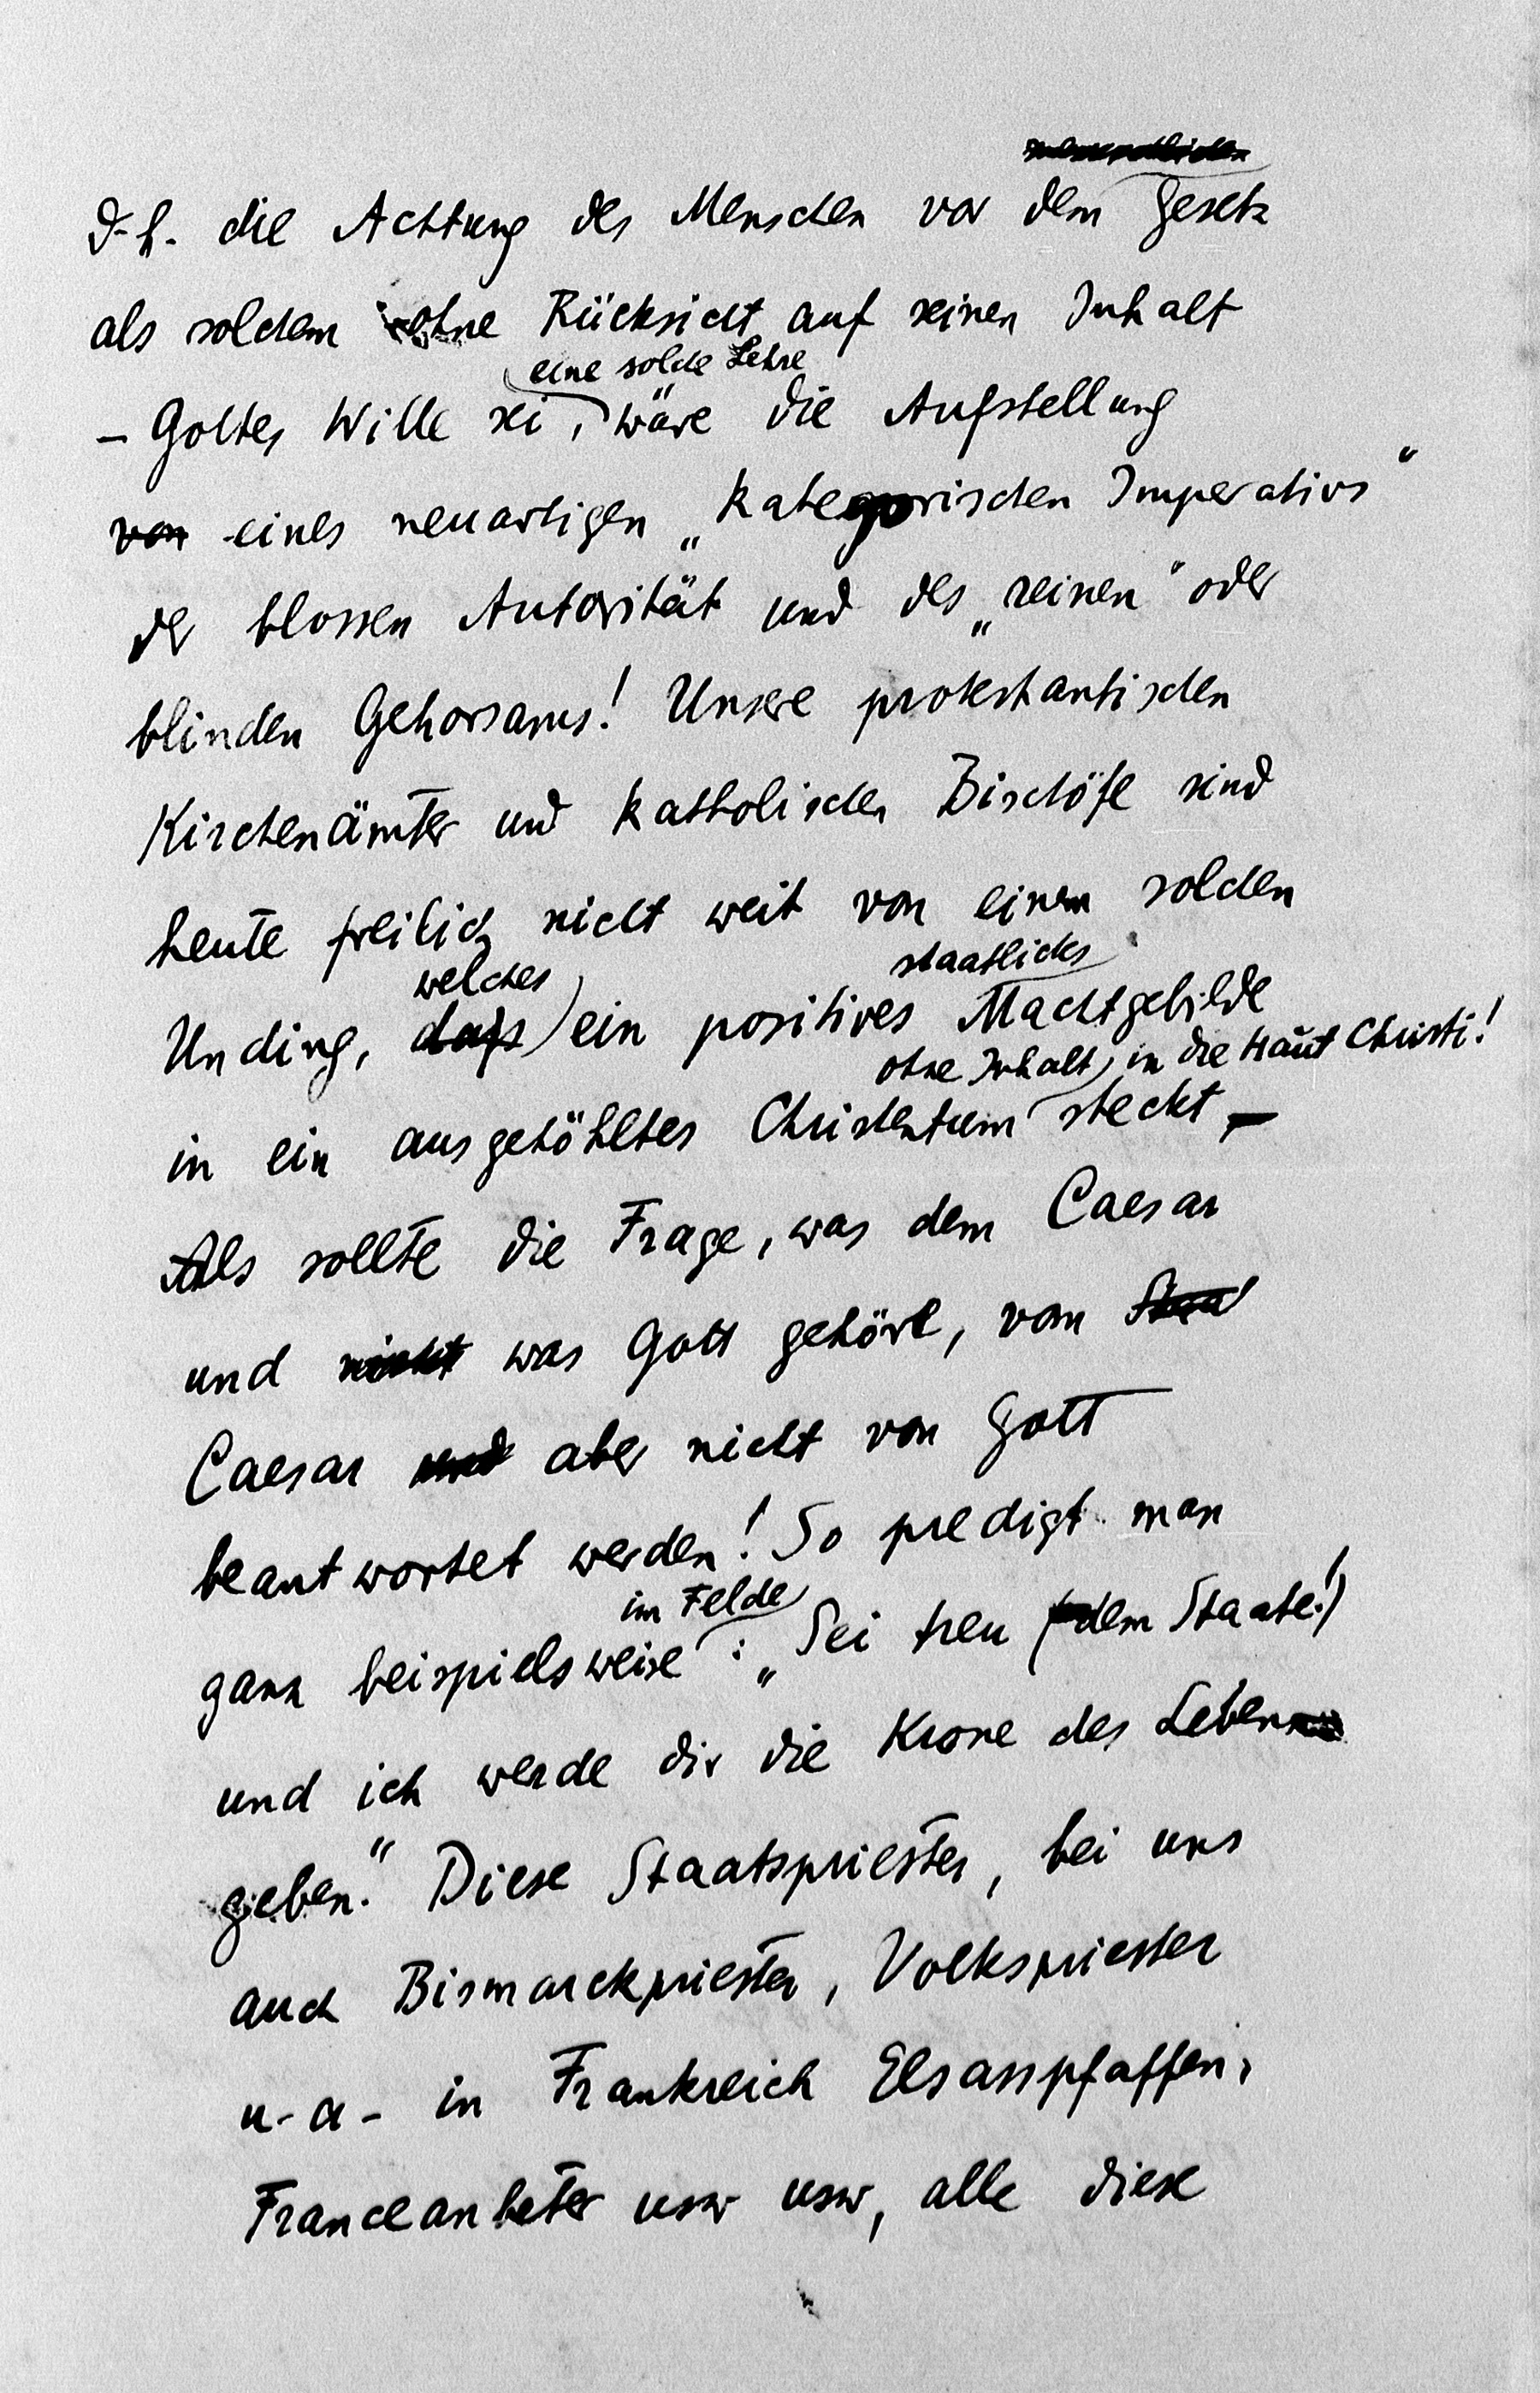 d.h. die Achtung des Menschen vor dem Gesetz
als solchem ohne Rücksicht auf seinen Inhalt
eine solche Lehre
– Gottes Wille sei, wäre die Aufstellung
von eines neuartigen „kategorischen Imperativs"
der blossen Autorität und des „reinen" oder
blinden Gehorsams! Unsere protestantischen
Kirchenämter und katholischen Bischöfe sind
heute freilich nicht weit von einem solchen
welches staatliches
Unding, dass ein positives Machtgebilde
ohne Inhalt in die Haut Christi!
in ein ausgehöhltes Christentum steckt –
Als sollte die Frage, was dem Caesar
und nicht was Gott gehört, vom Staat
Caesar und aber nicht von Gott
beantwortet werden! So predigt man
im Felde
ganz beispielsweise: „Sei treu (dem Staate!)
und ich werde dir die Krone des Lebens
geben." Diese Staatspriester, bei uns
auch Bismarckpriester, Volkspriester
u. a. in Frankreich Elsasspfaffen,
Franceanbeter usw usw, alle diese